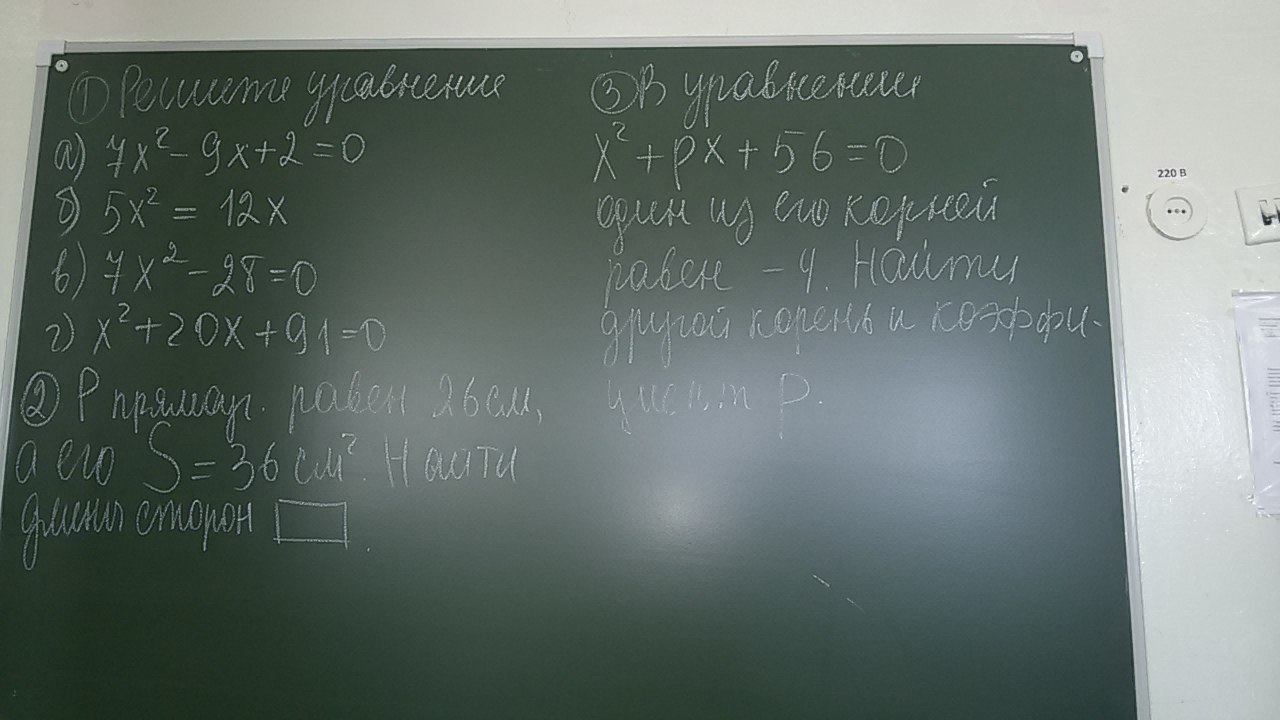 ① Решите уравнение
а) 7x² - 9x + 2 = 0
б) 5x² = 12x
в) 7x² - 28 = 0
г) x² + 20x + 91 = 0
② P прямоуг. равен 26 см,
а его S = 36 см². Найти
длины сторон
③ В уравнении
x² + px + 56 = 0
один из его корней
равен -4. Найти
другой корень и коэффи-
циент p.
220 В